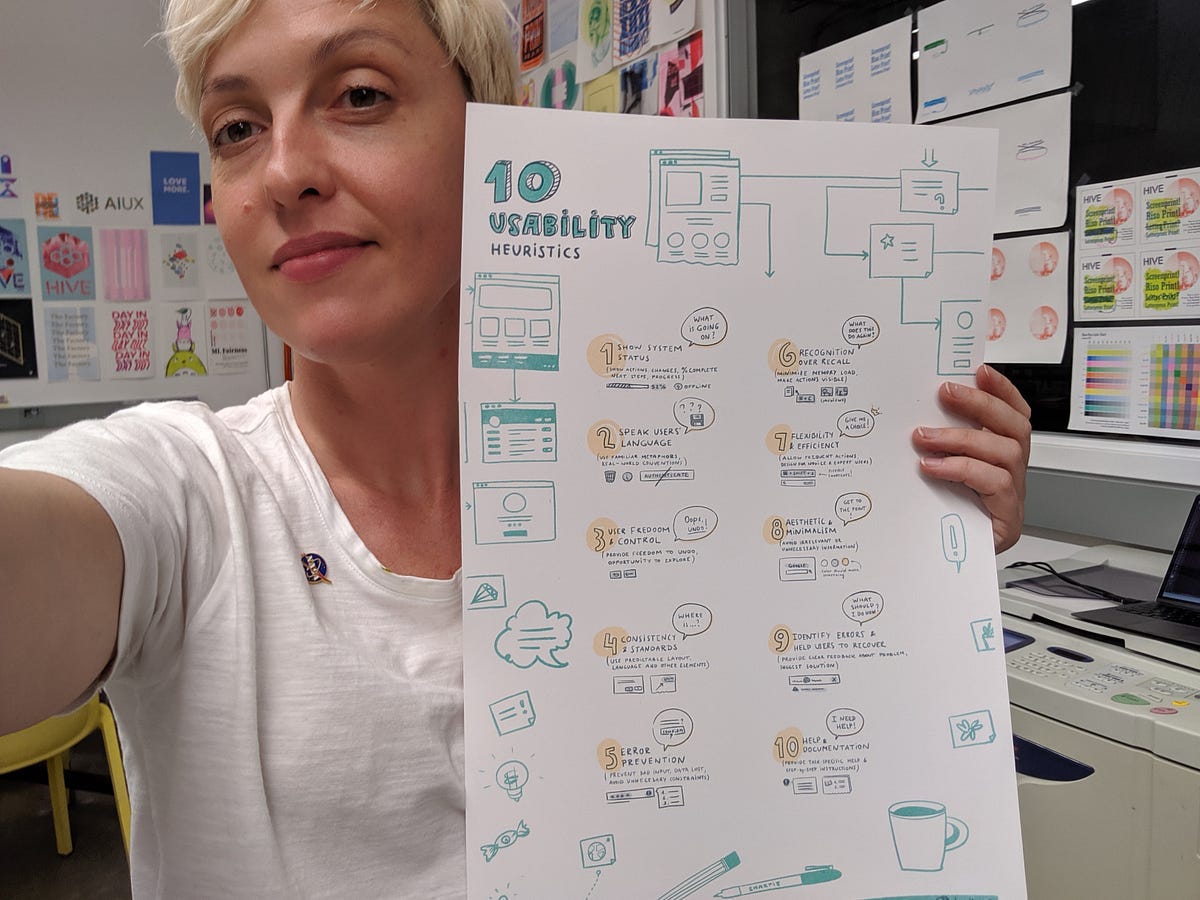 10
USABILITY
HEURISTICS
1 SHOW SYSTEM
STATUS
(SHOW ACTIONS CHANGES, % COMPLETE
NEXT STEPS, PROGRESS)
52% OFFLINE
WHAT
IS GOING
ON?
2 SPEAK USERS'
LANGUAGE
(USE FAMILIAR METAPHORS,
REAL-WORLD CONVENTIONS)
AUTHENTICATE
???
3 USER FREEDOM
& CONTROL
(PROVIDE FREEDOM TO UNDO,
OPPORTUNITY TO EXPLORE)
OOPS,
UNDO!
4 CONSISTENCY
& STANDARDS
(USE PREDICTABLE LAYOUT,
LANGUAGE AND OTHER ELEMENTS)
WHERE
IS...?
5 ERROR
PREVENTION
(PREVENT BAD INPUT, DATA LOST,
AVOID UNNECESARY CONSTRAINTS)
CONFIRM
6 RECOGNITION
OVER RECALL
(MINIMIZE MEMORY LOAD,
MAKE ACTIONS VISIBLE)
WHAT DOES THIS
DO AGAIN?
7 FLEXIBILITY
& EFFICIENCY
(ALLOW FREQUENT ACTIONS,
DESIGN FOR NOVICE & EXPERT USERS)
GIVE ME
A CHOICE!
8 AESTHETIC &
MINIMALISM
(AVOID IRRELEVANT OR
UNNECESSARY INFORMATION)
GOOGLE
GET TO
THE POINT
!
9 IDENTIFY ERRORS &
HELP USERS TO RECOVER
(PROVIDE CLEAR FEEDBACK ABOUT PROBLEM,
SUGGEST SOLUTION)
WHAT
SHOULD
I DO NOW?
10 HELP &
DOCUMENTATION
(PROVIDE TASK-SPECIFIC HELP &
STEP-BY-STEP INSTRUCTIONS)
I NEED
HELP!
SHARPIE
AIUX
LOVE
MORE.
HIVE
The Factory
DAY IN
DAY OUT
ML Fairness
Screenprint
Riso Print
Letterpress
HIVE
Screenprint
Riso Print
Letterpress Print
HIVE
HIVE
HIVE